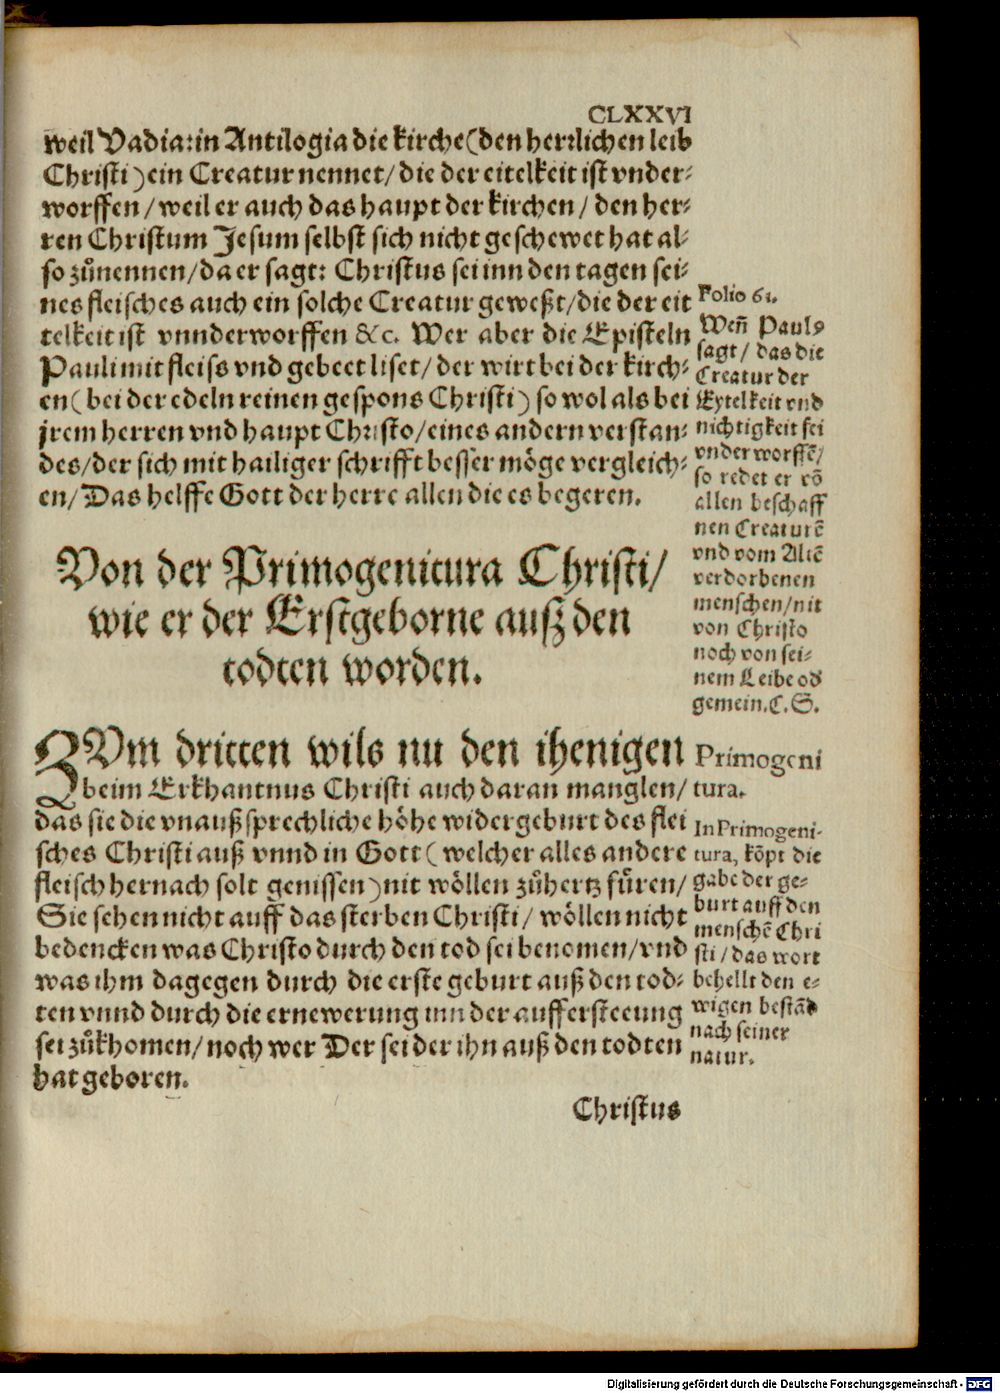 CLXXVI
weil Vadia: in Antilogia die kirche (den herrlichen leib
Christi) ein Creatur nennet / die der eitelkeit ist vnder-
worffen / weil er auch das haupt der kirchen / den her-
ren Christum Jesum selbst sich nicht geschewet hat al-
so zůnennen / da er sagt: Christus sei inn den tagen sei-
nes fleisches auch ein solche Creatur geweßt / die der eit
telkeit ist vnnderworffen &c. Wer aber die Episteln
Pauli mit fleiss vnd gebeet liset / der wirt bei der kirch-
en (bei der edeln reinen gespons Christi) so wol als bei
jrem herren vnd haupt Christo / eines andern verstan-
des / der sich mit hailiger schrifft besser möge vergleich-
en / Das helffe Gott der herre allen die es begeren.
Folio 61.
Weñ Paulꝰ
sagt / das die
Creatur der
Eytelkeit vnd
nichtigkeit sei
vnderworffẽ /
so redet er võ
allen beschaff
nen Creaturẽ
vnd vom Altẽ
verdorbenen
menschen / nit
von Christo
noch von sei-
nem Leibe od
gemein. C. S.
Von der Primogenitura Christi /
wie er der Erstgeborne außz den
todten worden.
ZVm dritten wils nu den ihenigen
beim Erkhantnus Christi auch daran manglen /
das sie die vnaußsprechliche höhe widergeburt des flei
sches Christi auß vnnd in Gott (welcher alles andere
fleisch hernach solt genissen) nit wöllen zůhertz fůren /
Sie sehen nicht auff das sterben Christi / wöllen nicht
bedencken was Christo durch den tod sei benomen / vnd
was ihm dagegen durch die erste geburt auß den tod-
ten vnnd durch die ernewerung inn der auffersteeung
sei zůkhomen / noch wer Der sei der ihn auß den todten
hat geboren.
Primogeni
tura.
In Primogeni-
tura, kõpt die
gabe der ge-
burt auff den
menschẽ Chri
sti / das wort
behellt den e-
wigen bestãd
nach seiner
natur.
Christus
Digitalisierung gefördert durch die Deutsche Forschungsgemeinschaft - DFG